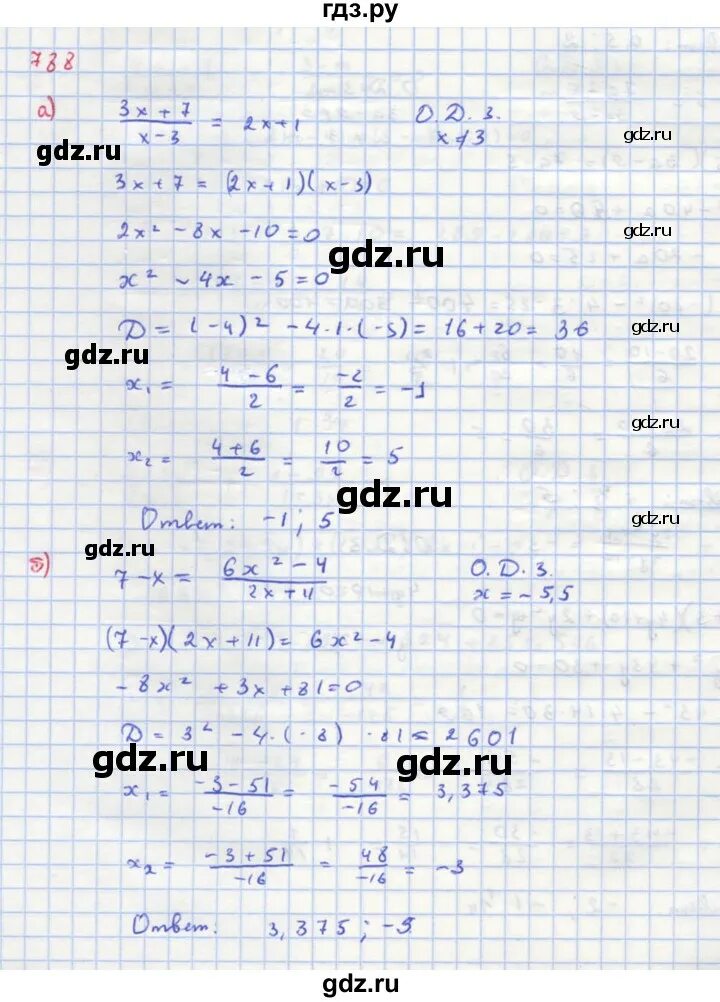 гдз.ру
788
а) (3x + 7)/(x - 3) = 2x + 1 О.Д.З. x ≠ 3
gdz.ru
gdz.ru
3x + 7 = (2x + 1)(x - 3)
2x² - 8x - 10 = 0
gdz.ru
gdz.ru
x² - 4x - 5 = 0
D = (-4)² - 4·1·(-5) = 16 + 20 = 36
gdz.ru
gdz.ru
x₁ = (4 - 6)/2 = -2/2 = -1
gdz.ru
x₂ = (4 + 6)/2 = 10/2 = 5
gdz.ru
Ответ: -1; 5
gdz.ru
gdz.ru
б) 7 - x = (6x² - 4)/(2x + 11) О.Д.З. x = -5,5
(7 - x)(2x + 11) = 6x² - 4
-8x² + 3x + 81 = 0
D = 3² - 4·(-8)·81 = 2601
gdz.ru
gdz.ru
x₁ = (-3 - 51)/-16 = -54/-16 = 3,375
x₂ = (-3 + 51)/-16 = 48/-16 = -3
Ответ: 3,375; -3
gdz.ru
gdz.ru